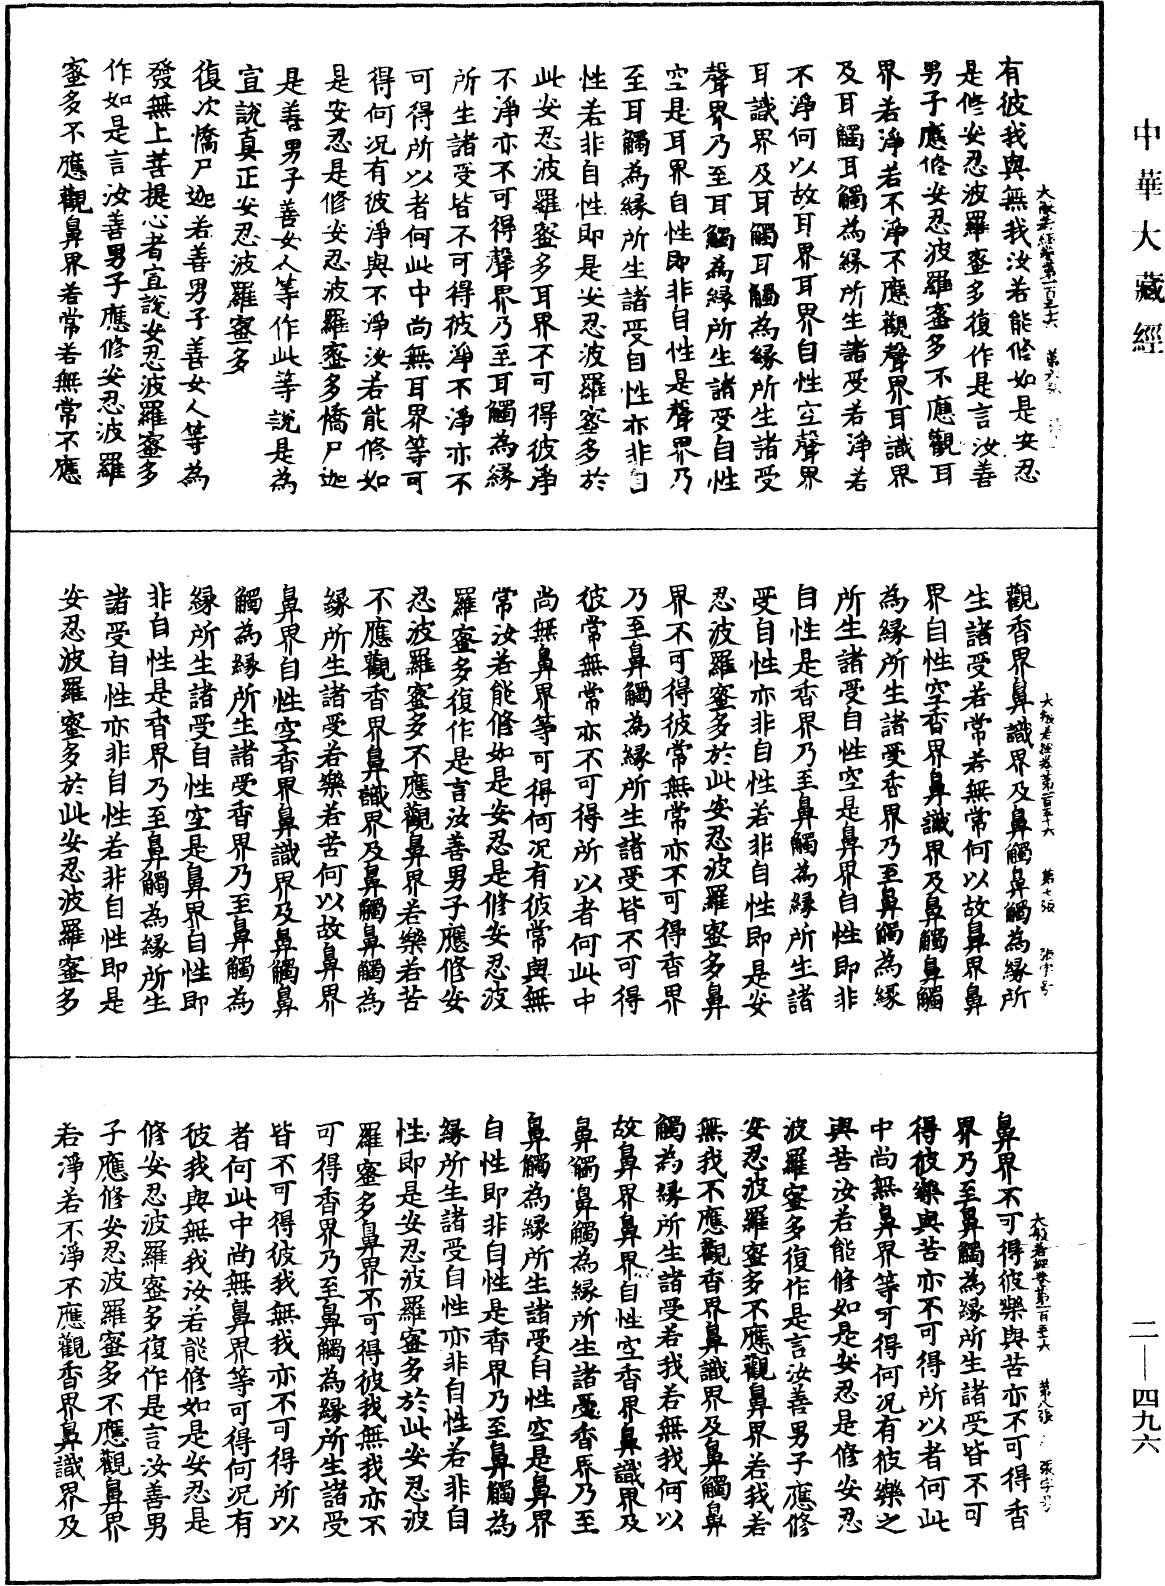 中華大藏經
有彼我與無我汝若能修如是安忍
是修安忍波羅蜜多復作是言汝善
男子應修安忍波羅蜜多不應觀耳
界若淨若不淨不應觀聲界耳識界
及耳觸耳觸為緣所生諸受若淨若
不淨何以故耳界耳界自性空聲界
耳識界及耳觸耳觸為緣所生諸受
聲界乃至耳觸為緣所生諸受自性
空是耳界自性即非自性是聲界乃
至耳觸為緣所生諸受自性亦非自
性若非自性即是安忍波羅蜜多於
此安忍波羅蜜多耳界不可得彼淨
不淨亦不可得聲界乃至耳觸為緣
所生諸受皆不可得彼淨不淨亦不
可得所以者何此中尚無耳界等可
得何況有彼淨與不淨汝若能修如
是安忍是修安忍波羅蜜多憍尸迦
是善男子善女人等作此等說是為
宣說真正安忍波羅蜜多
復次憍尸迦若善男子善女人等為
發無上菩提心者宣說安忍波羅蜜多
作如是言汝善男子應修安忍波羅
蜜多不應觀鼻界若常若無常不應
大般若經卷第一百五十六 第六張
觀香界鼻識界及鼻觸鼻觸為緣所
生諸受若常若無常何以故鼻界鼻
界自性空香界鼻識界及鼻觸鼻觸
為緣所生諸受香界乃至鼻觸為緣
所生諸受自性空是鼻界自性即非
自性是香界乃至鼻觸為緣所生諸
受自性亦非自性若非自性即是安
忍波羅蜜多於此安忍波羅蜜多鼻
界不可得彼常無常亦不可得香界
乃至鼻觸為緣所生諸受皆不可得
彼常無常亦不可得所以者何此中
尚無鼻界等可得何況有彼常與無
常汝若能修如是安忍是修安忍波
羅蜜多復作是言汝善男子應修安
忍波羅蜜多不應觀鼻界若樂若苦
不應觀香界鼻識界及鼻觸鼻觸為
緣所生諸受若樂若苦何以故鼻界
鼻界自性空香界鼻識界及鼻觸鼻
觸為緣所生諸受香界乃至鼻觸為
緣所生諸受自性空是鼻界自性即
非自性是香界乃至鼻觸為緣所生
諸受自性亦非自性若非自性即是
安忍波羅蜜多於此安忍波羅蜜多
大般若經卷第一百五十六 第七張 張字号
鼻界不可得彼樂與苦亦不可得香
界乃至鼻觸為緣所生諸受皆不可
得彼樂與苦亦不可得所以者何此
中尚無鼻界等可得何況有彼樂之
與苦汝若能修如是安忍是修安忍
波羅蜜多復作是言汝善男子應修
安忍波羅蜜多不應觀鼻界若我若
無我不應觀香界鼻識界及鼻觸鼻
觸為緣所生諸受若我若無我何以
故鼻界鼻界自性空香界鼻識界及
鼻觸鼻觸為緣所生諸受香界乃至
鼻觸為緣所生諸受自性空是鼻界
自性即非自性是香界乃至鼻觸為
緣所生諸受自性亦非自性若非自
性即是安忍波羅蜜多於此安忍波
羅蜜多鼻界不可得彼我無我亦不
可得香界乃至鼻觸為緣所生諸受
皆不可得彼我無我亦不可得所以
者何此中尚無鼻界等可得何況有
彼我與無我汝若能修如是安忍是
修安忍波羅蜜多復作是言汝善男
子應修安忍波羅蜜多不應觀鼻界
若淨若不淨不應觀香界鼻識界及
大般若經卷第一百五十六 第八張 張字号
二—四九六